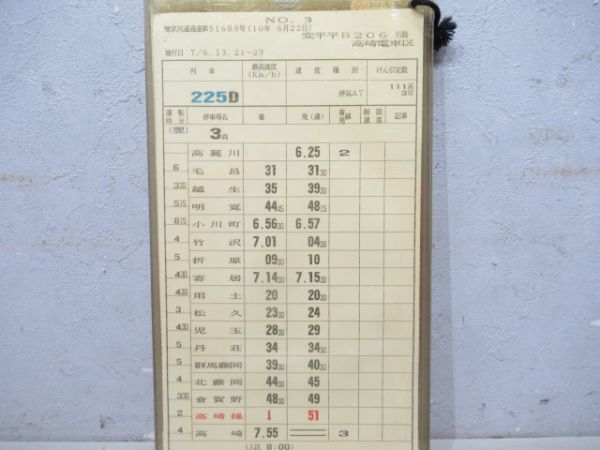 NO. 3
東京共通運達第51689号(10年 6月22日)
変平平B206 行路
高崎電車区
施行日 7/6.13.21~23
列車 最高速度(Km/h) 速度種別 けん引定数
225D 停気A7 111系 3両
運転時分 停車場名 着 発(通) 着発線 制限速度 記事
3両
高麗川 6.25 2
6 毛呂 31 31 30
3 30 越生 35 39 00
5 15 明覚 44 45 48 15
8 15 小川町 6.56 30 6.57
4 竹沢 7.01 04 30
5 折原 09 30 10
4 30 寄居 7.14 30 7.15 30
4 30 用土 20 20 30
3 松久 23 30 24
4 30 児玉 28 30 29
5 丹荘 34 34 30
5 群馬藤岡 39 30 40 30
4 北藤岡 44 30 45
3 30 倉賀野 48 30 49
2 高崎操 ↓ 51
4 高崎 7.55 = 3
(入区 8:00)